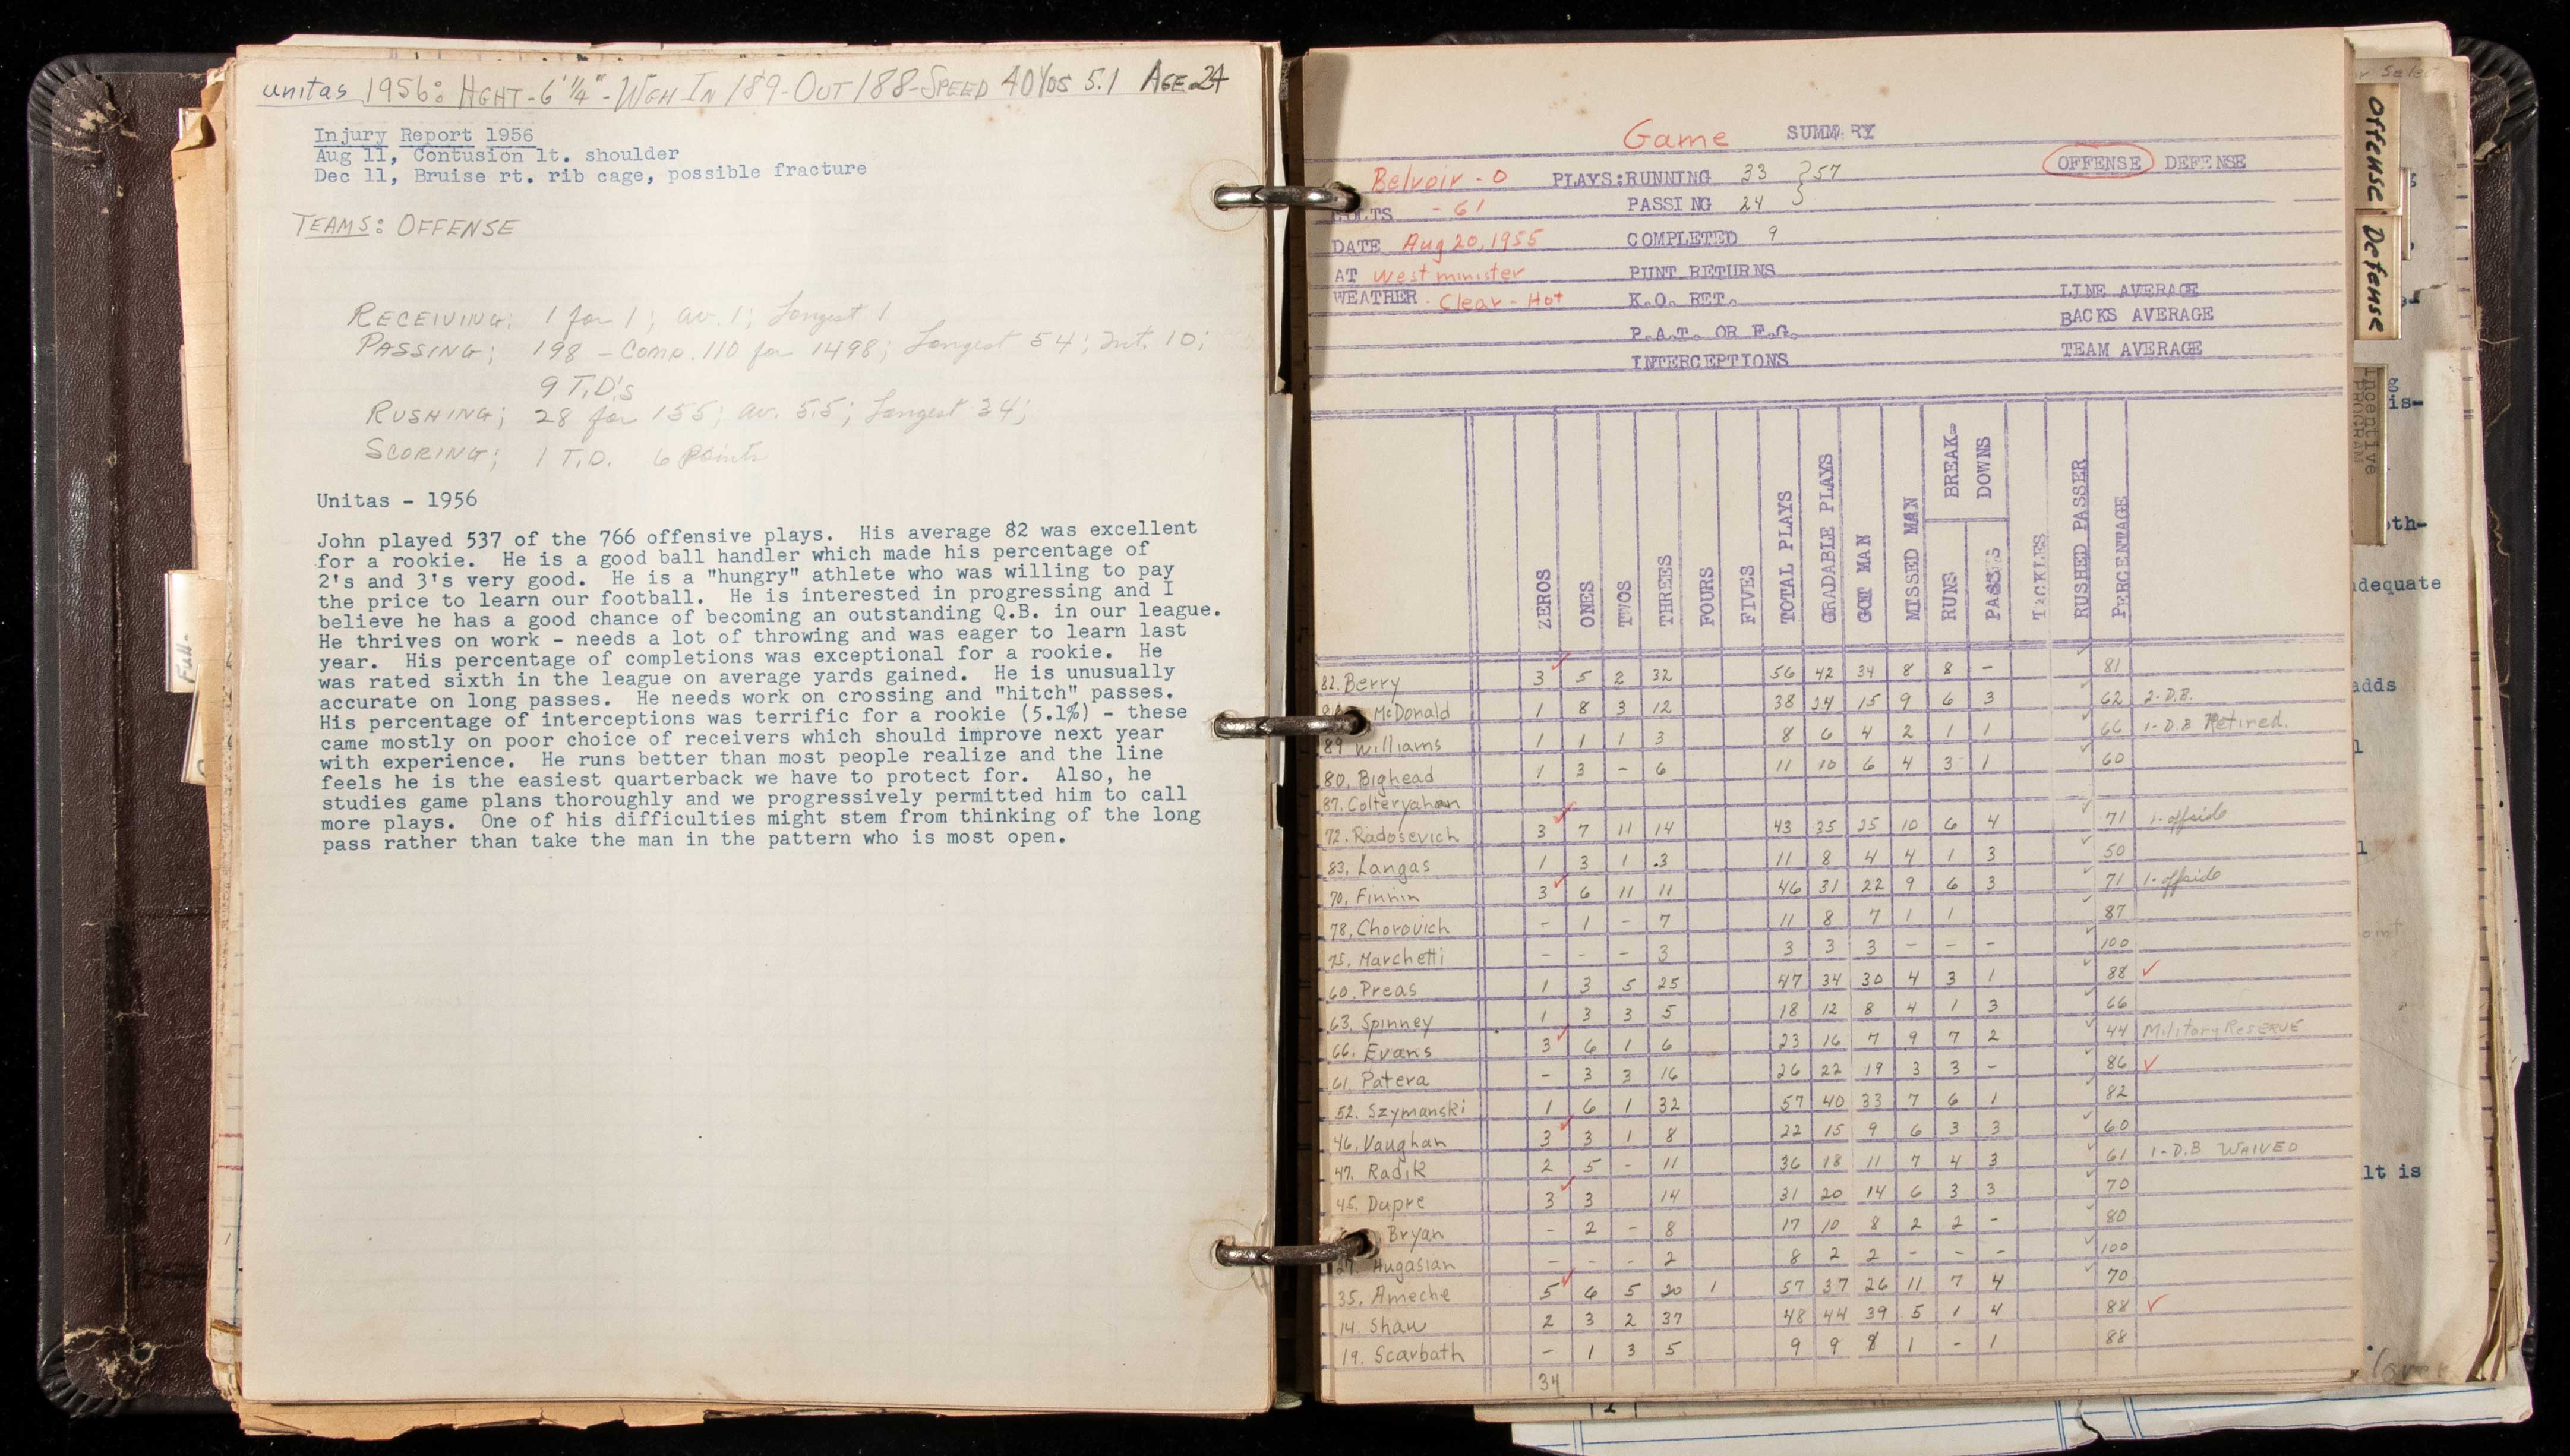 unitas 1956: HGHT-6' 1/4"-WGH IN 189-OUT 188-SPEED 40 YDS 5.1 AGE 24
Injury Report 1956
Aug 11, Contusion lt. shoulder
Dec 11, Bruise rt. rib cage, possible fracture
TEAMS: OFFENSE
RECEIVING: 1 for 1; av. 1; Longest 1
PASSING; 198 - Comp. 110 for 1498; Longest 54; Int. 10;
9 T.D.'s
RUSHING; 28 for 155; av. 5.5; Longest 34;
SCORING; 1 T.D. 6 Points
Unitas - 1956
John played 537 of the 766 offensive plays. His average 82 was excellent
for a rookie. He is a good ball handler which made his percentage of
2's and 3's very good. He is a "hungry" athlete who was willing to pay
the price to learn our football. He is interested in progressing and I
believe he has a good chance of becoming an outstanding Q.B. in our league.
He thrives on work - needs a lot of throwing and was eager to learn last
year. His percentage of completions was exceptional for a rookie. He
was rated sixth in the league on average yards gained. He is unusually
accurate on long passes. He needs work on crossing and "hitch" passes.
His percentage of interceptions was terrific for a rookie (5.1%) - these
came mostly on poor choice of receivers which should improve next year
with experience. He runs better than most people realize and the line
feels he is the easiest quarterback we have to protect for. Also, he
studies game plans thoroughly and we progressively permitted him to call
more plays. One of his difficulties might stem from thinking of the long
pass rather than take the man in the pattern who is most open.
Full-
Game SUMMARY
OFFENSE DEFENSE
Belvoir - 0 PLAYS:RUNNING 33 } 57
COLTS - 61 PASSING 24
DATE Aug 20, 1955 COMPLETED 9
AT Westminister PUNT RETURNS
WEATHER. Clear - Hot K.O. RET. LINE AVERAGE
P.A.T. OR F.G. BACKS AVERAGE
INTERCEPTIONS TEAM AVERAGE
ZEROS ONES TWOS THREES FOURS FIVES TOTAL PLAYS GRADABLE PLAYS GOT MAN MISSED MAN BREAK-DOWNS RUNS PASSES TACKLES RUSHED PASSER PERCENTAGE
82. Berry 3 5 2 32 56 42 34 8 8 - 81
McDonald 1 8 3 12 38 24 15 9 6 3 62 2-D.B.
89 Williams 1 1 1 3 8 6 4 2 1 1 66 1-D.B Retired.
80. Bighead 1 3 - 6 11 10 6 4 3 1 60
87. Colteryahan
72. Radosevich 3 7 11 14 43 35 25 10 6 4 71 1-offside
83. Langas 1 3 1 3 11 8 4 4 1 3 50
70. Finnin 3 6 11 11 46 31 22 9 6 3 71 1-offside
78. Chorovich - 1 - 7 11 8 7 1 1 87
75. Marchetti - - - 3 3 3 3 - - - 100
60. Preas 1 3 5 25 47 34 30 4 3 1 88 ✓
63. Spinney 1 3 3 5 18 12 8 4 1 3 66
66. Evans 3 6 1 6 23 16 7 9 7 2 44 Military RESERVE
61. Patera - 3 3 16 26 22 19 3 3 - 86 ✓
52. Szymanski 1 6 1 32 57 40 33 7 6 1 82
46. Vaughan 3 3 1 8 22 15 9 6 3 3 60
47. Radik 2 5 - 11 36 18 11 7 4 3 61 1-D.B WAIVED
45. Dupre 3 3 14 31 20 14 6 3 3 70
Bryan - 2 - 8 17 10 8 2 2 - 80
27. Hugasian - - - 2 8 2 2 - - - 100
35. Ameche 5 6 5 20 1 57 37 26 11 7 4 70
14. Shaw 2 3 2 37 48 44 39 5 1 4 88 ✓
19. Scarbath - 1 3 5 9 9 8 1 - 1 88
34
Offense
Defense
Incentive
PROGRAM
is-
oth-
adequate
adds
lt is